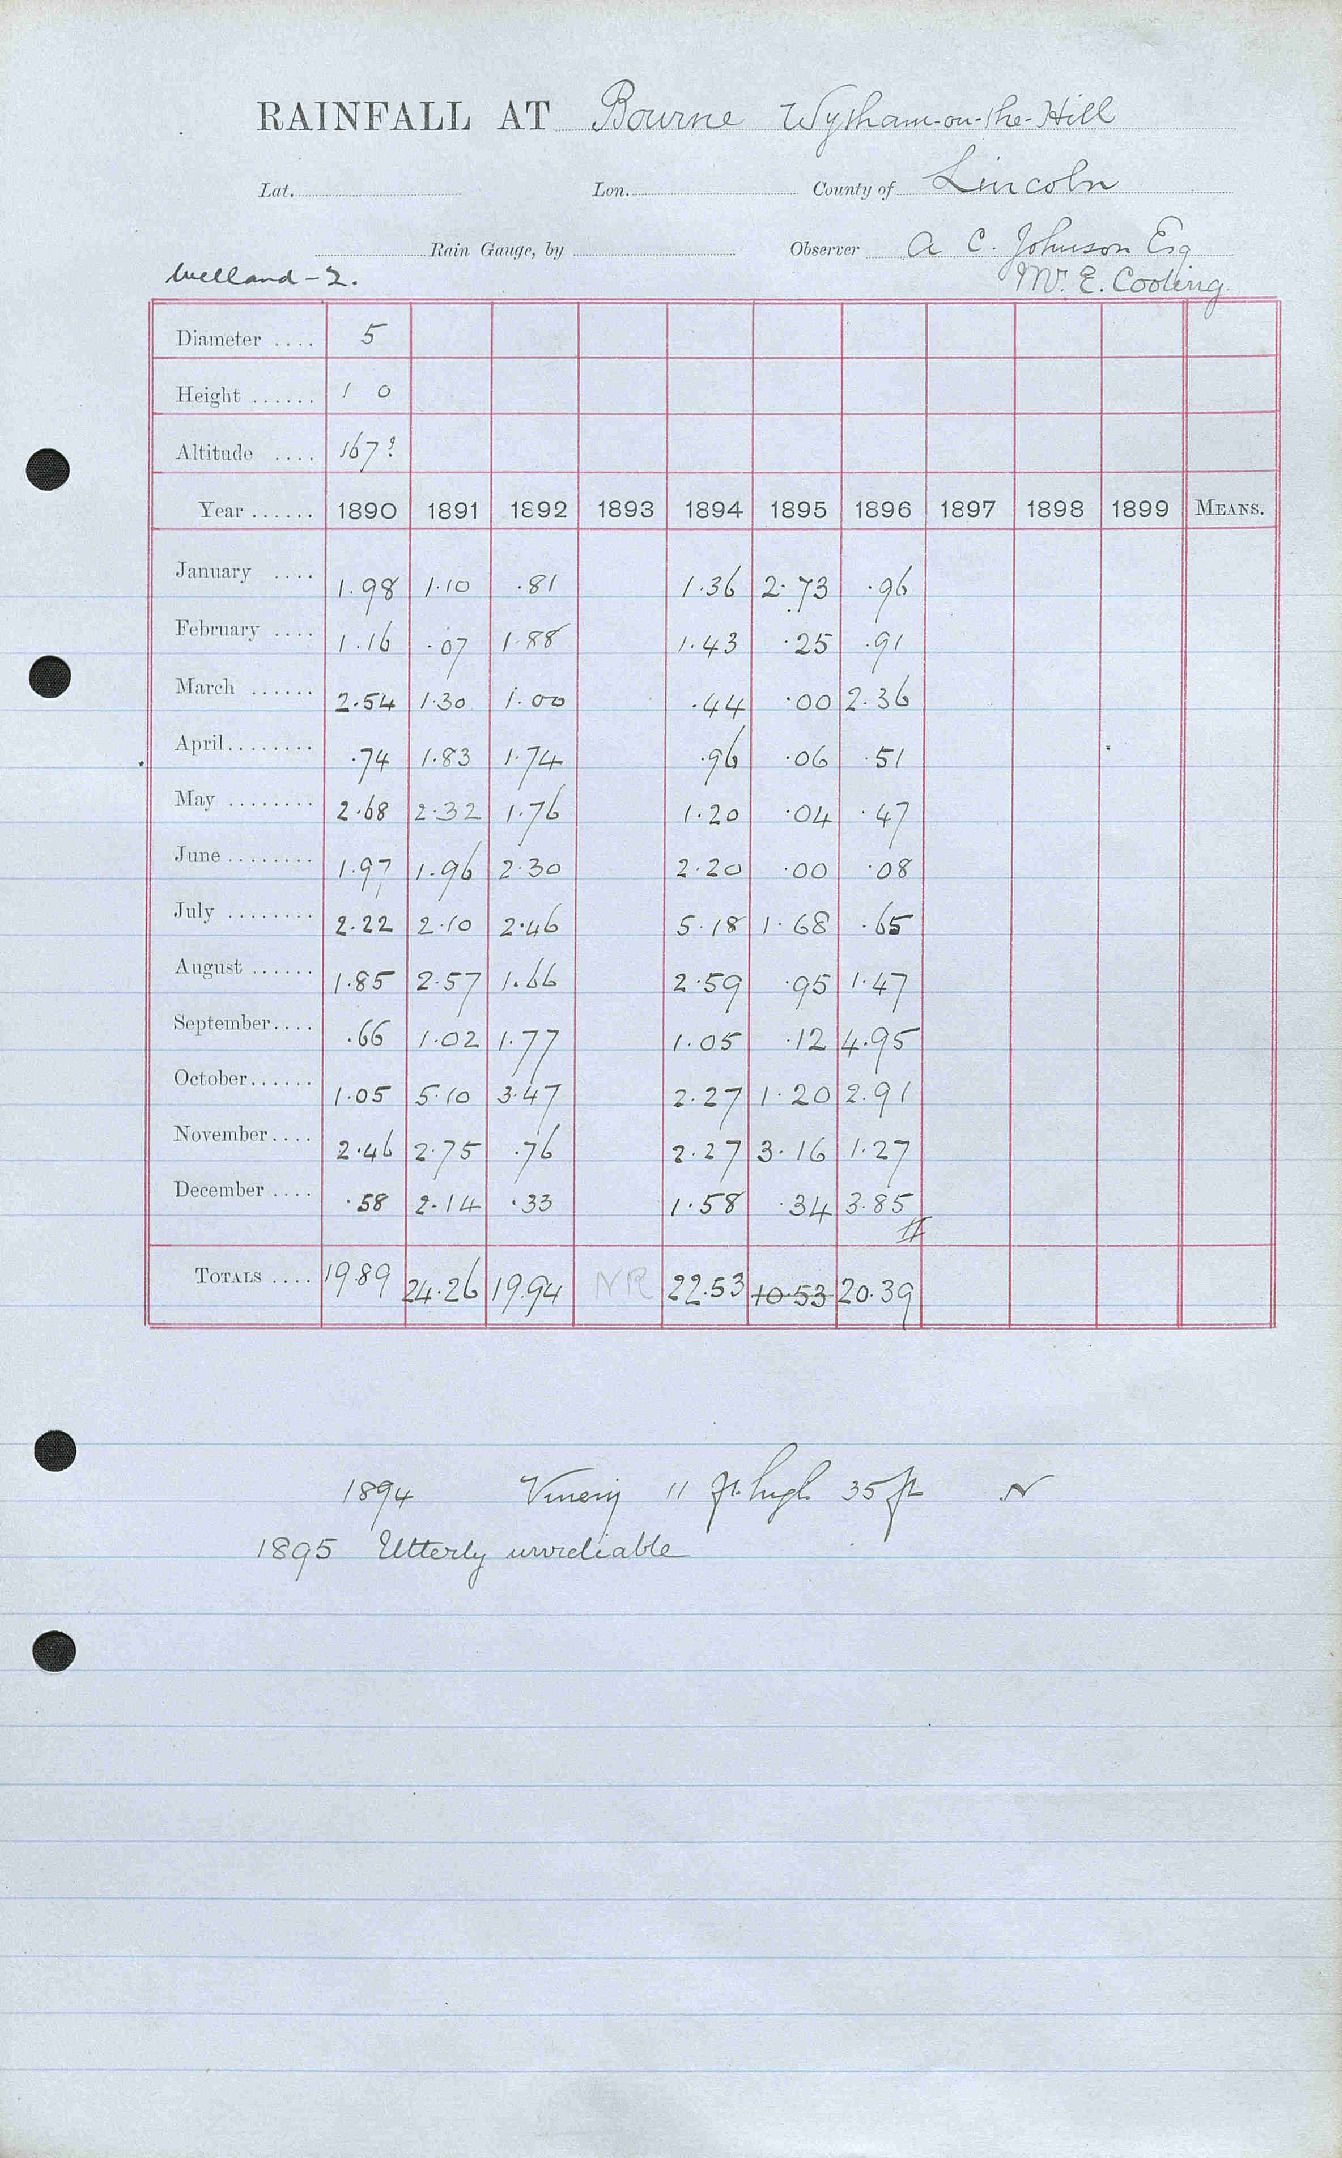 RAINFALL AT Bourne Wytham-on-the-Hill
Lat. Lon. County of Lincoln
Rain Gauge, by Observer A C. Johnson Esq
Welland-2. Mr. E. Cooling
Diameter .... 5
Height ...... 1 0
Altitude .... 167?
Year ...... 1890 1891 1892 1893 1894 1895 1896 1897 1898 1899 MEANS.
January .... 1.98 1.10 .81 1.36 2.73 .96
February .... 1.16 .07 1.88 1.43 .25 .91
March ...... 2.54 1.30 1.00 .44 .00 2.36
April........ .74 1.83 1.74 .96 .06 .51
May ........ 2.68 2.32 1.76 1.20 .04 .47
June ........ 1.97 1.96 2.30 2.20 .00 .08
July ........ 2.22 2.10 2.46 5.18 1.68 .65
August ...... 1.85 2.57 1.66 2.59 .95 1.47
September.... .66 1.02 1.77 1.05 .12 4.95
October...... 1.05 5.10 3.47 2.27 1.20 2.91
November.... 2.46 2.75 .76 2.27 3.16 1.27
December .... .58 2.14 .33 1.58 .34 3.85
TOTALS .... 19.89 24.26 19.94 NR 22.53 10.53 20.39
1894 Vinery 11 ft. high 35 ft N
1895 Utterly unreliable